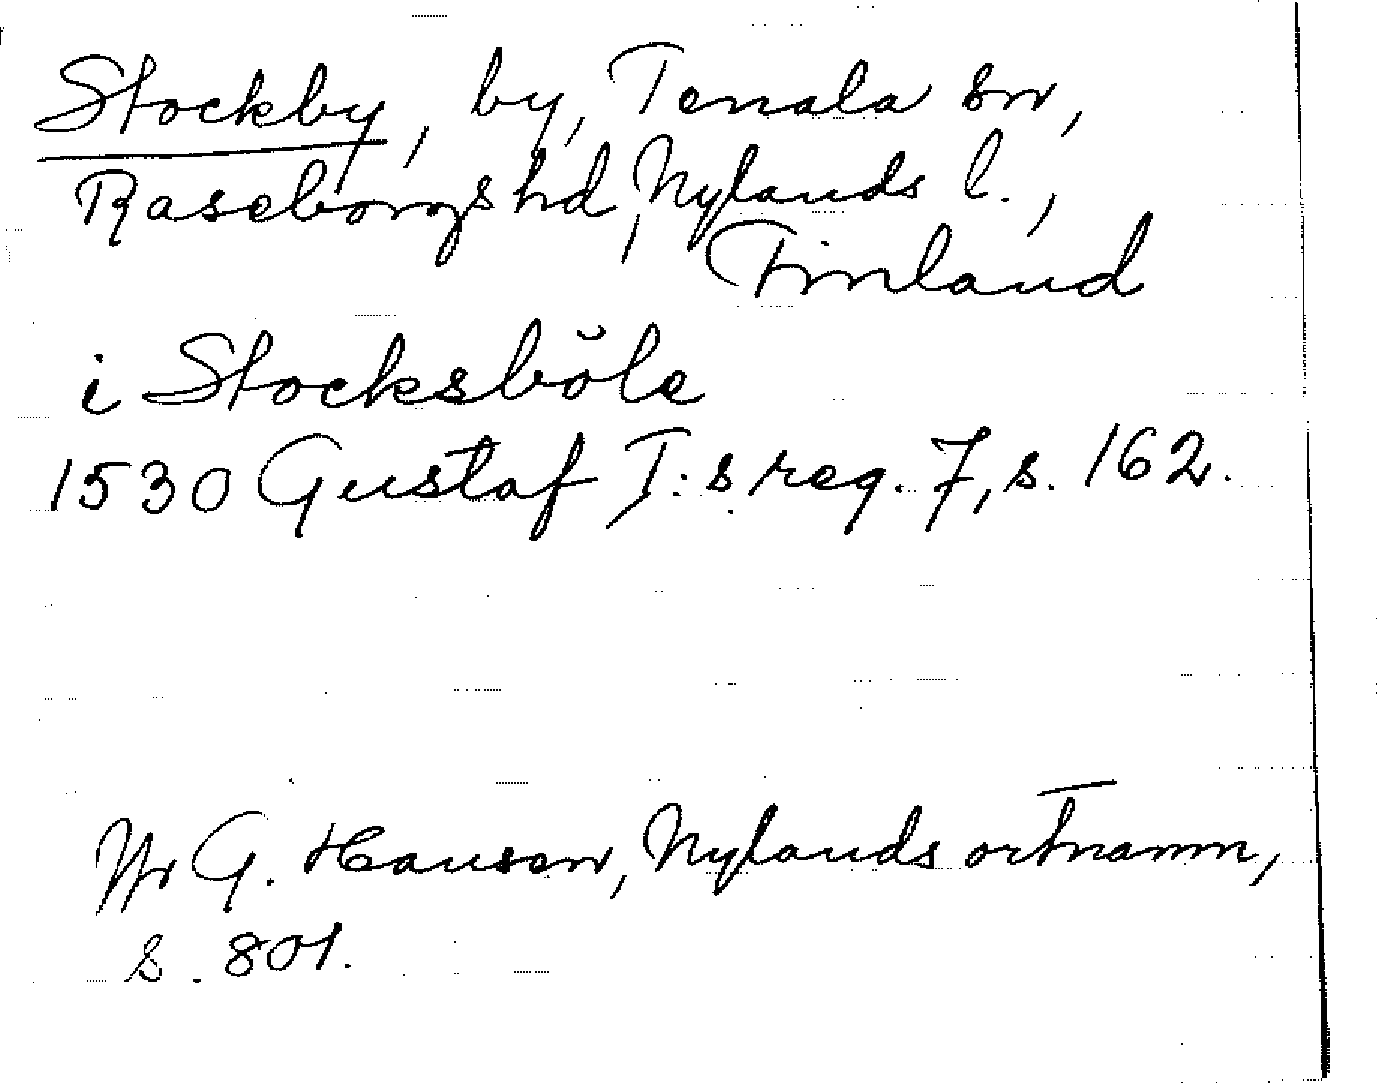 Stockby, by, Tenala sn,
Raseborgs hd, Nylands l.,
Finland
i Stocksböle
1530 Gustaf I:s reg. 7, s. 162.
Ur G. Hausen, Nylands ortnamn,
s. 801.